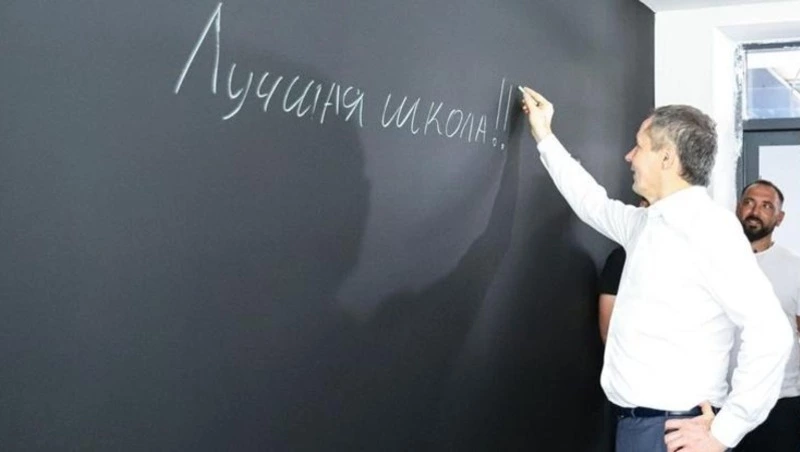 Лучшая школа!!!